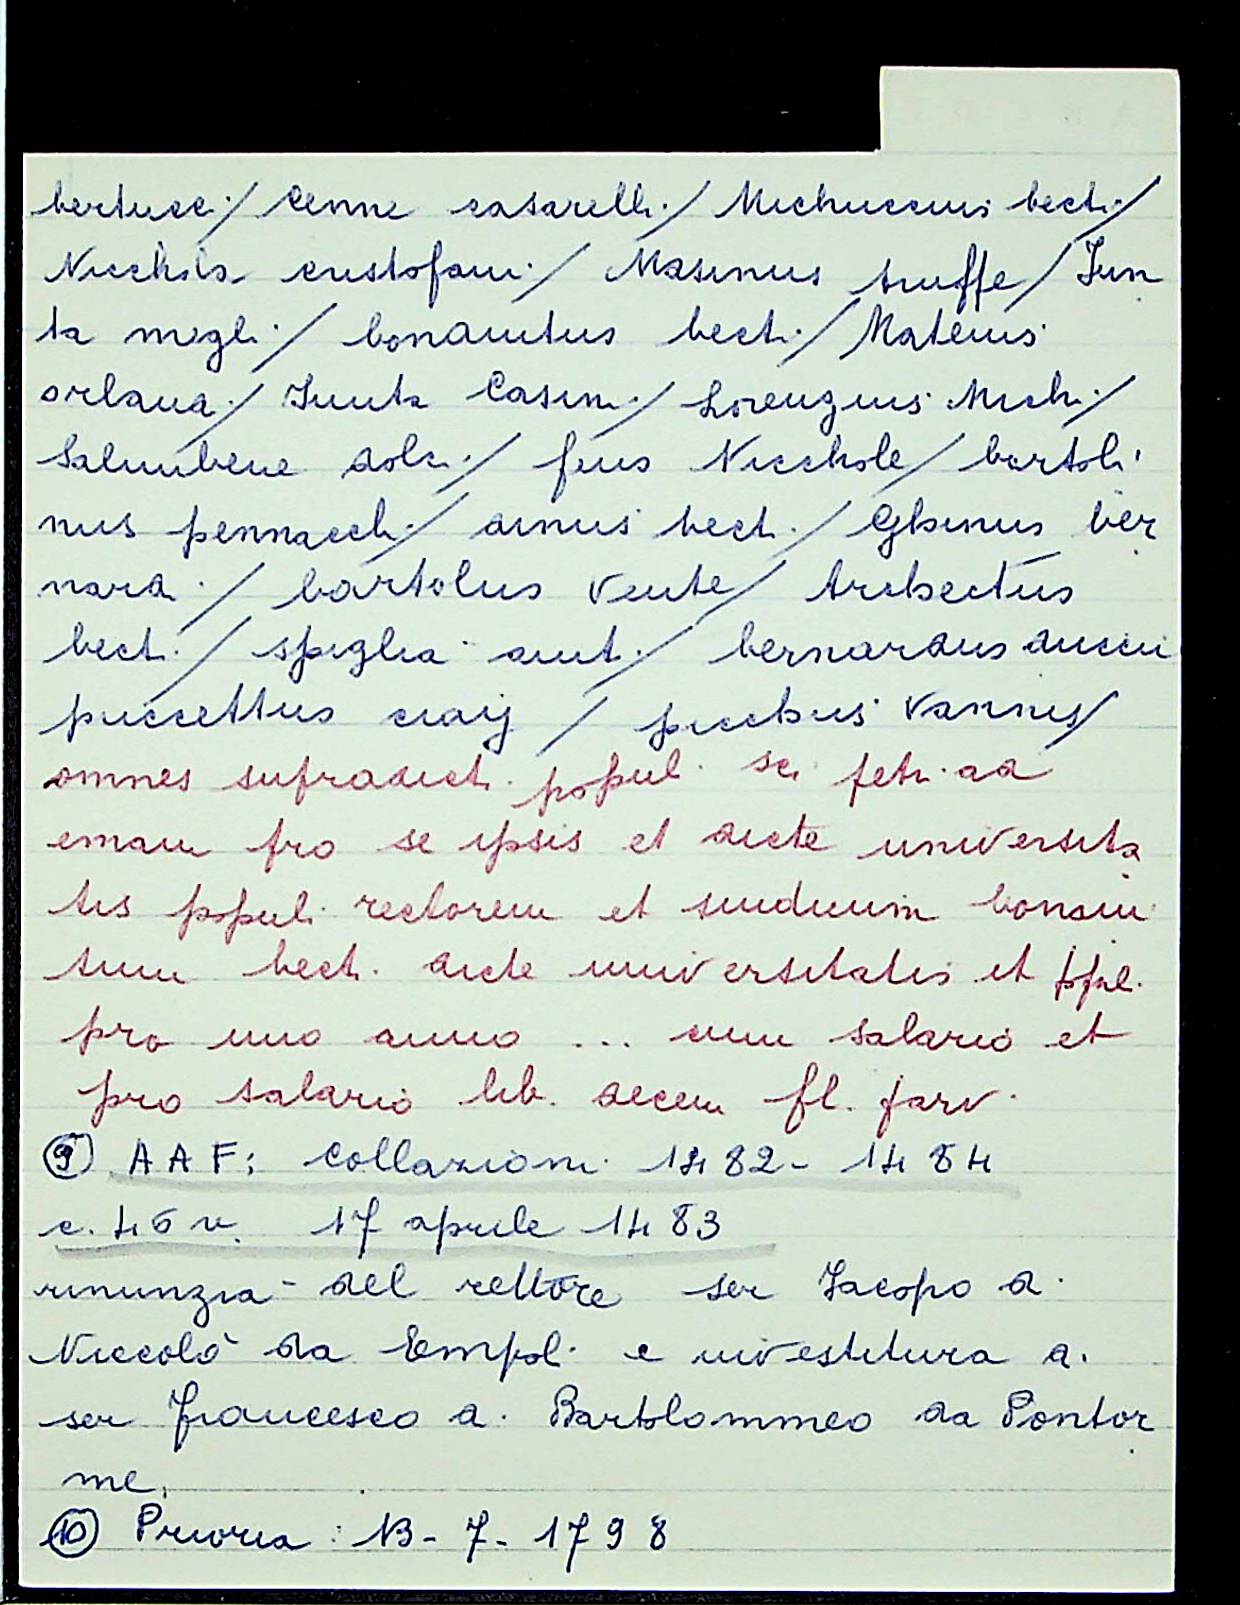 bertucci / Cenne casarelli / Michuccius becti /
Nicchola cristofani / Masinus truffe / Jun
ta migli / bonaiutus becti / Mateius
orlandi / Junta Casini / Lorenzius Mich. /
Salimbene dolci / feus Nicchole / bartoli
nus pennacchi / dinus becti / Ghinus ber
nardi / bartolus Vente / 
becti / spiglia aiuti / bernardus duccii
puccettus ciaij / picchus Vannis /
omnes supradicti popul. sci petri ad
emam pro se ipsis et dicte universita
tis populi rectorem et sindicum bonaiu
tum becti. dicte universitatis et ppl.
pro uno anno ... cum salario et
pro salario lib. decem fl. parv.
⑨ AAF: Collazioni 1482-1484
c. 46 v. 17 aprile 1483
rinunzia del rettore ser Jacopo di
Niccolò da Empoli e investitura a.
ser Francesco di Bartolommeo da Pontor
me.
⑩ Prioria: 13-7-1798